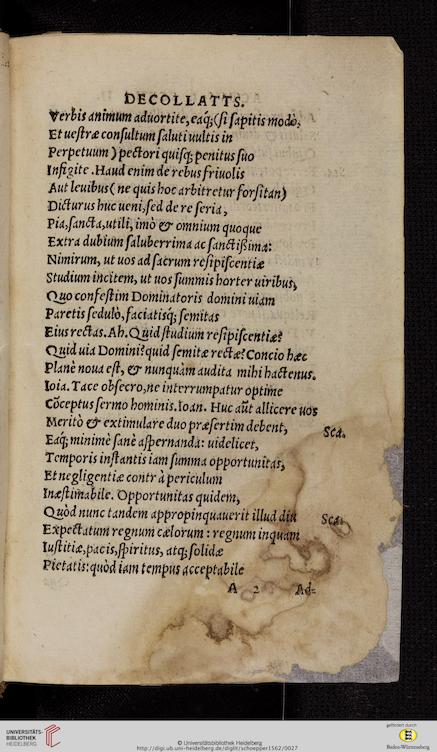 DECOLLATTS.
Verbis animum aduortite, eaq́;(si sapitis modò,
Et uestræ consultum saluti uultis in
Perpetuum) pectori quisq; penitus suo
Infigite. Haud enim de rebus friuolis
Aut leuibus (ne quis hoc arbitretur forsitan)
Dicturus huc ueni, sed de re seria,
Pia, sancta, utili, imò & omnium quoque
Extra dubium saluberrima ac sanctißima:
Nimirum, ut uos ad sacrum resipiscentiæ
Studium incitem, ut uos summis horter uiribus,
Quo confestim Dominatoris domini uiam
Paretis sedulò, faciatisq; semitas
Eius rectas. Ah. Quid studium resipiscentiæ?
Quid uia Domini? quid semitæ rectæ? Concio hæc
Planè noua est, & nunquàm audita mihi hactenus.
Ioia. Tace obsecro, ne interrumpatur optimè
Cõceptus sermo hominis. Ioan. Huc aũt allicere uos
Meritò & extimulare duo præsertim debent,
Eaq́; minimè sanè aspernanda: uidelicet,
Sca.
Temporis instantis iam summa opportunitas,
Et negligentiæ contrà periculum
Inæstimabile. Opportunitas quidem,
Quòd nunc tandem appropinquauerit illud diu
Sca.
Expectatum regnum cælorum: regnum inquam
Iustitiæ, pacis, spiritus, atq; solidæ
Pietatis: quòd iam tempus acceptabile
A 2 Ad=
UNIVERSITÄTS-
BIBLIOTHEK
HEIDELBERG
© Universitätsbibliothek Heidelberg
http://digi.ub.uni-heidelberg.de/diglit/schoepper1562/0027
gefördert durch
Baden-Württemberg